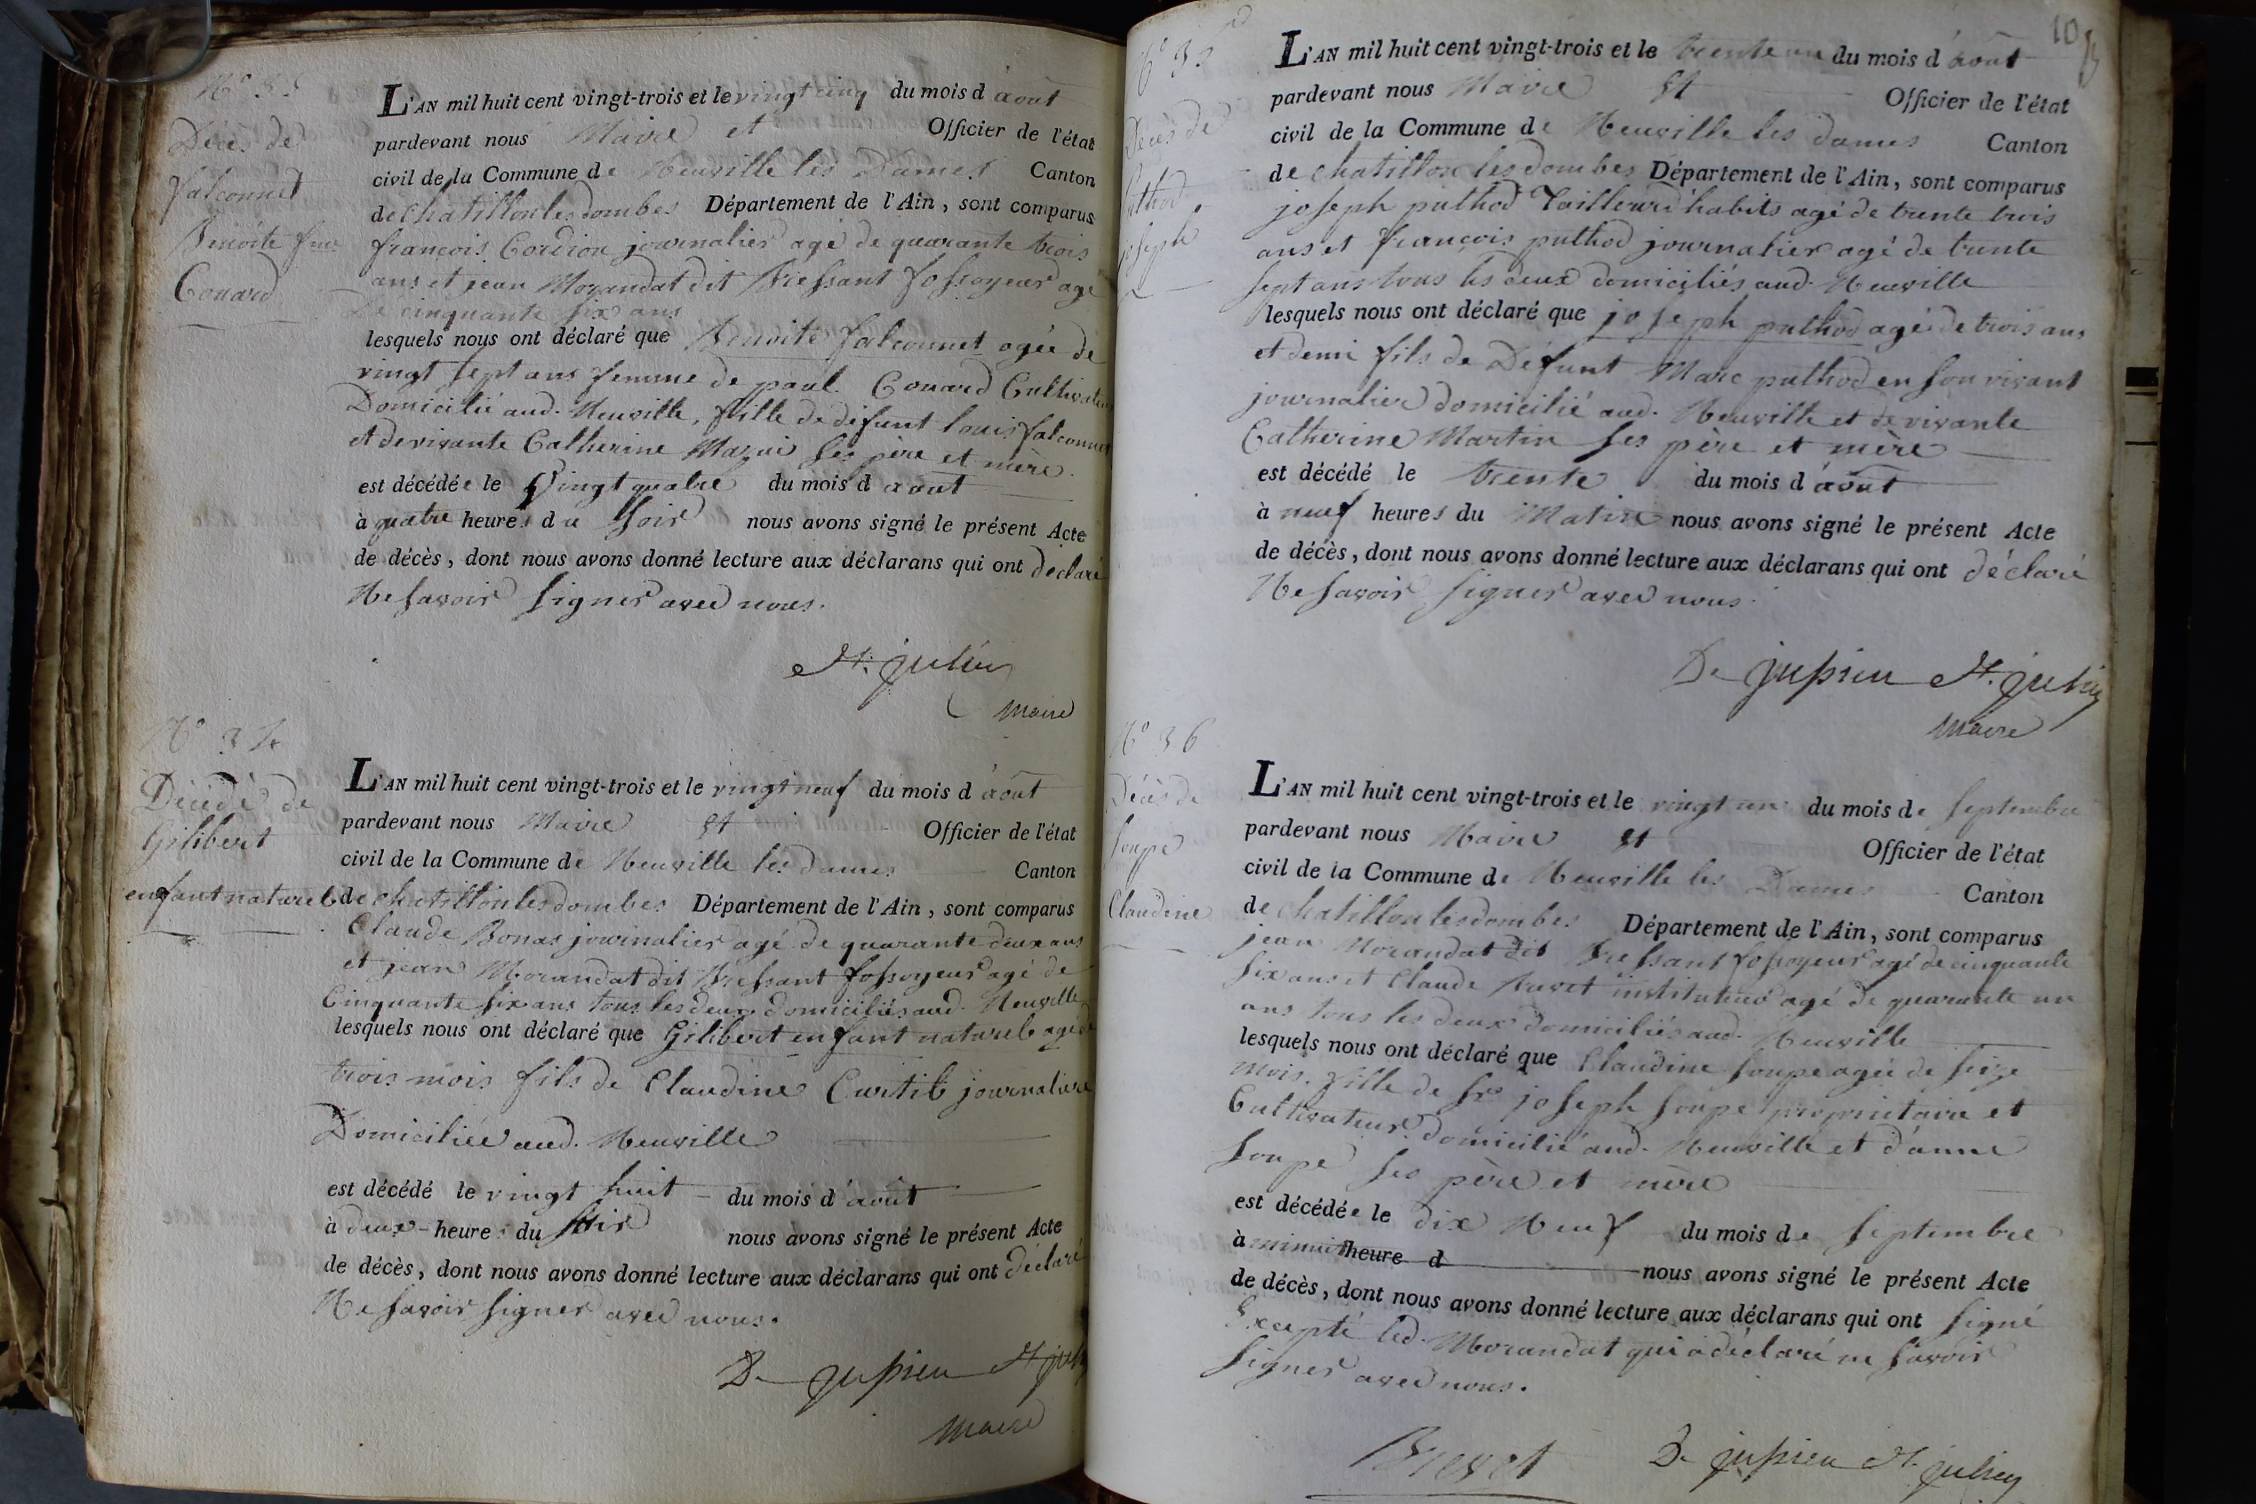 N° 33
Décès de
falconnet
Benoite fme
Couard
L'AN mil huit cent vingt-trois et le vingt cinq du mois d'août
pardevant nous Maire et Officier de l'état
civil de la Commune de Neuville les Dames Canton
de Chatillon les dombes Département de l'Ain, sont comparus
françois Cordion journalier agé de quarante trois
ans et jean Morandat dit Bressant fossoyeur agé
De cinquante six ans
lesquels nous ont déclaré que Benoite falconnet agée de
vingt sept ans femme de paul Couard Cultivateur
Domicilié aud. Neuville, fille de défunt louis falconnet
et de vivante Catherine Mazui ses père et mère.
est décédée le Vingt quatre du mois d'aout
à quatre heures du soir nous avons signé le présent Acte
de décès, dont nous avons donné lecture aux déclarans qui ont déclaré
Ne savoir signer avec nous.
St. julien
Maire
N° 34
Décédé de
Gilibert
enfant naturel
L'AN mil huit cent vingt-trois et le vingt neuf du mois d'août
pardevant nous Maire et Officier de l'état
civil de la Commune de Neuville les dames Canton
de chatillon les dombes Département de l'Ain, sont comparus
Claude Bonas journalier agé de quarante deux ans
et jean Morandat dit Bressant fossoyeur agé de
Cinquante six ans tous les deux domiciliés aud. Neuville
lesquels nous ont déclaré que Gilibert enfant naturel agé de
trois mois fils de Claudine Curtil journaliere
Domiciliée aud. Neuville
est décédé le vingt huit du mois d'août
à deux heures du soir nous avons signé le présent Acte
de décès, dont nous avons donné lecture aux déclarans qui ont déclaré
Ne savoir signer avec nous.
De jussieu St. jul
Maire
10
N° 35
Décès de
puthod
joseph
L'AN mil huit cent vingt-trois et le trente un du mois d'août
pardevant nous Maire et Officier de l'état
civil de la Commune de Neuville les dames Canton
de chatillon les dombes Département de l'Ain, sont comparus
joseph puthod Tailleur d'habits agé de trente trois
ans et françois puthod journalier agé de trente
sept ans tous les deux domiciliés aud. Neuville
lesquels nous ont déclaré que joseph puthod agé de trois ans
et demi fils de Défunt Marc puthod en son vivant
journalier domicilié aud. Neuville et de vivante
Catherine Martin ses père et mère
est décédé le trente du mois d'août
à neuf heures du Matin nous avons signé le présent Acte
de décès, dont nous avons donné lecture aux déclarans qui ont déclaré
Ne savoir signer avec nous.
De jussieu St. julien
Maire
N° 36
Décès de
soupe
Claudine
L'AN mil huit cent vingt-trois et le vingt un du mois de septembre
pardevant nous Maire et Officier de l'état
civil de la Commune de Neuville les Dames Canton
de chatillon les dombes Département de l'Ain, sont comparus
jean Morandat dit Bressant fossoyeur agé de cinquante
six ans et Claude Buvet instituteur agé de quarante un
ans tous les deux domiciliés aud. Neuville
lesquels nous ont déclaré que Claudine soupe agée de seize
mois. fille de Sr joseph soupe proprietaire et
Cultivateur domicilié aud. Neuville et d'anne
soupe ses père et mère
est décédée le dix Neuf du mois de septembre
à minuit heure d nous avons signé le présent Acte
de décès, dont nous avons donné lecture aux déclarans qui ont signé
Excepté led. Morandat qui a déclaré ne savoir
signer avec nous.
De jussieu St. julien